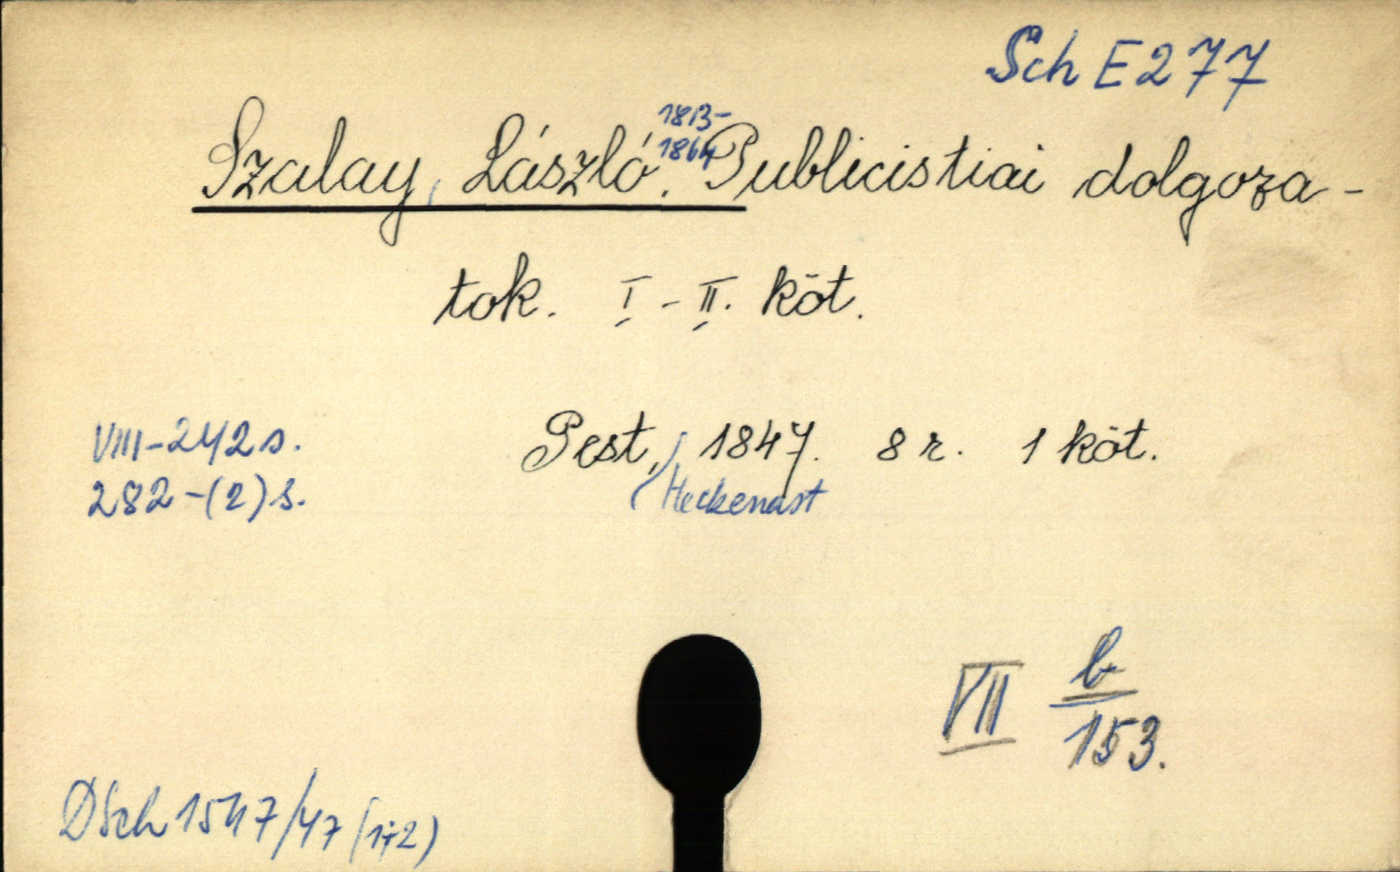 Sch E277
1813-
1864
Szalay, László. Publicistiai dolgoza-
tok. I - II. köt.
VIII-242 s.
Pest, 1847. 8 r. 1 köt.
282-(2) s.
Heckenast
VII b/153.
DSch 1547/47 (1+2)